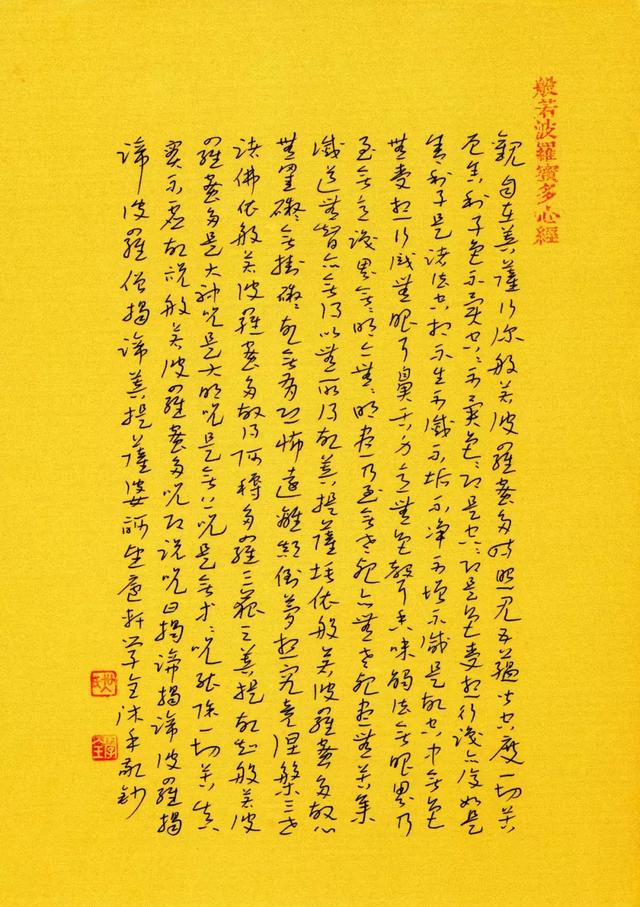 般若波羅蜜多心經
觀自在菩薩行深般若波羅蜜多時照見五蘊皆空度一切苦
厄舍利子色不異空々不異色々即是空々即是色受想行識亦復如是
舍利子是諸法空相不生不滅不垢不淨不增不減是故空中無色
無受想行識無眼耳鼻舌身意無色聲香味觸法無眼界乃
至無意識界無無明亦無無明盡乃至無老死亦無老死盡無苦集
滅道無智亦無得以無所得故菩提薩埵依般若波羅蜜多故心
無罣礙無掛礙故無有恐怖遠離顛倒夢想究竟涅槃三世
諸佛依般若波羅蜜多故得阿耨多羅三藐三菩提故知般若波
羅蜜多是大神呪是大明呪是無上呪是無等々呪能除一切苦真
實不虛故說般若波羅蜜多呪即說呪曰揭諦揭諦波羅揭
諦波羅僧揭諦菩提薩婆訶軒學全沐手敬鈔